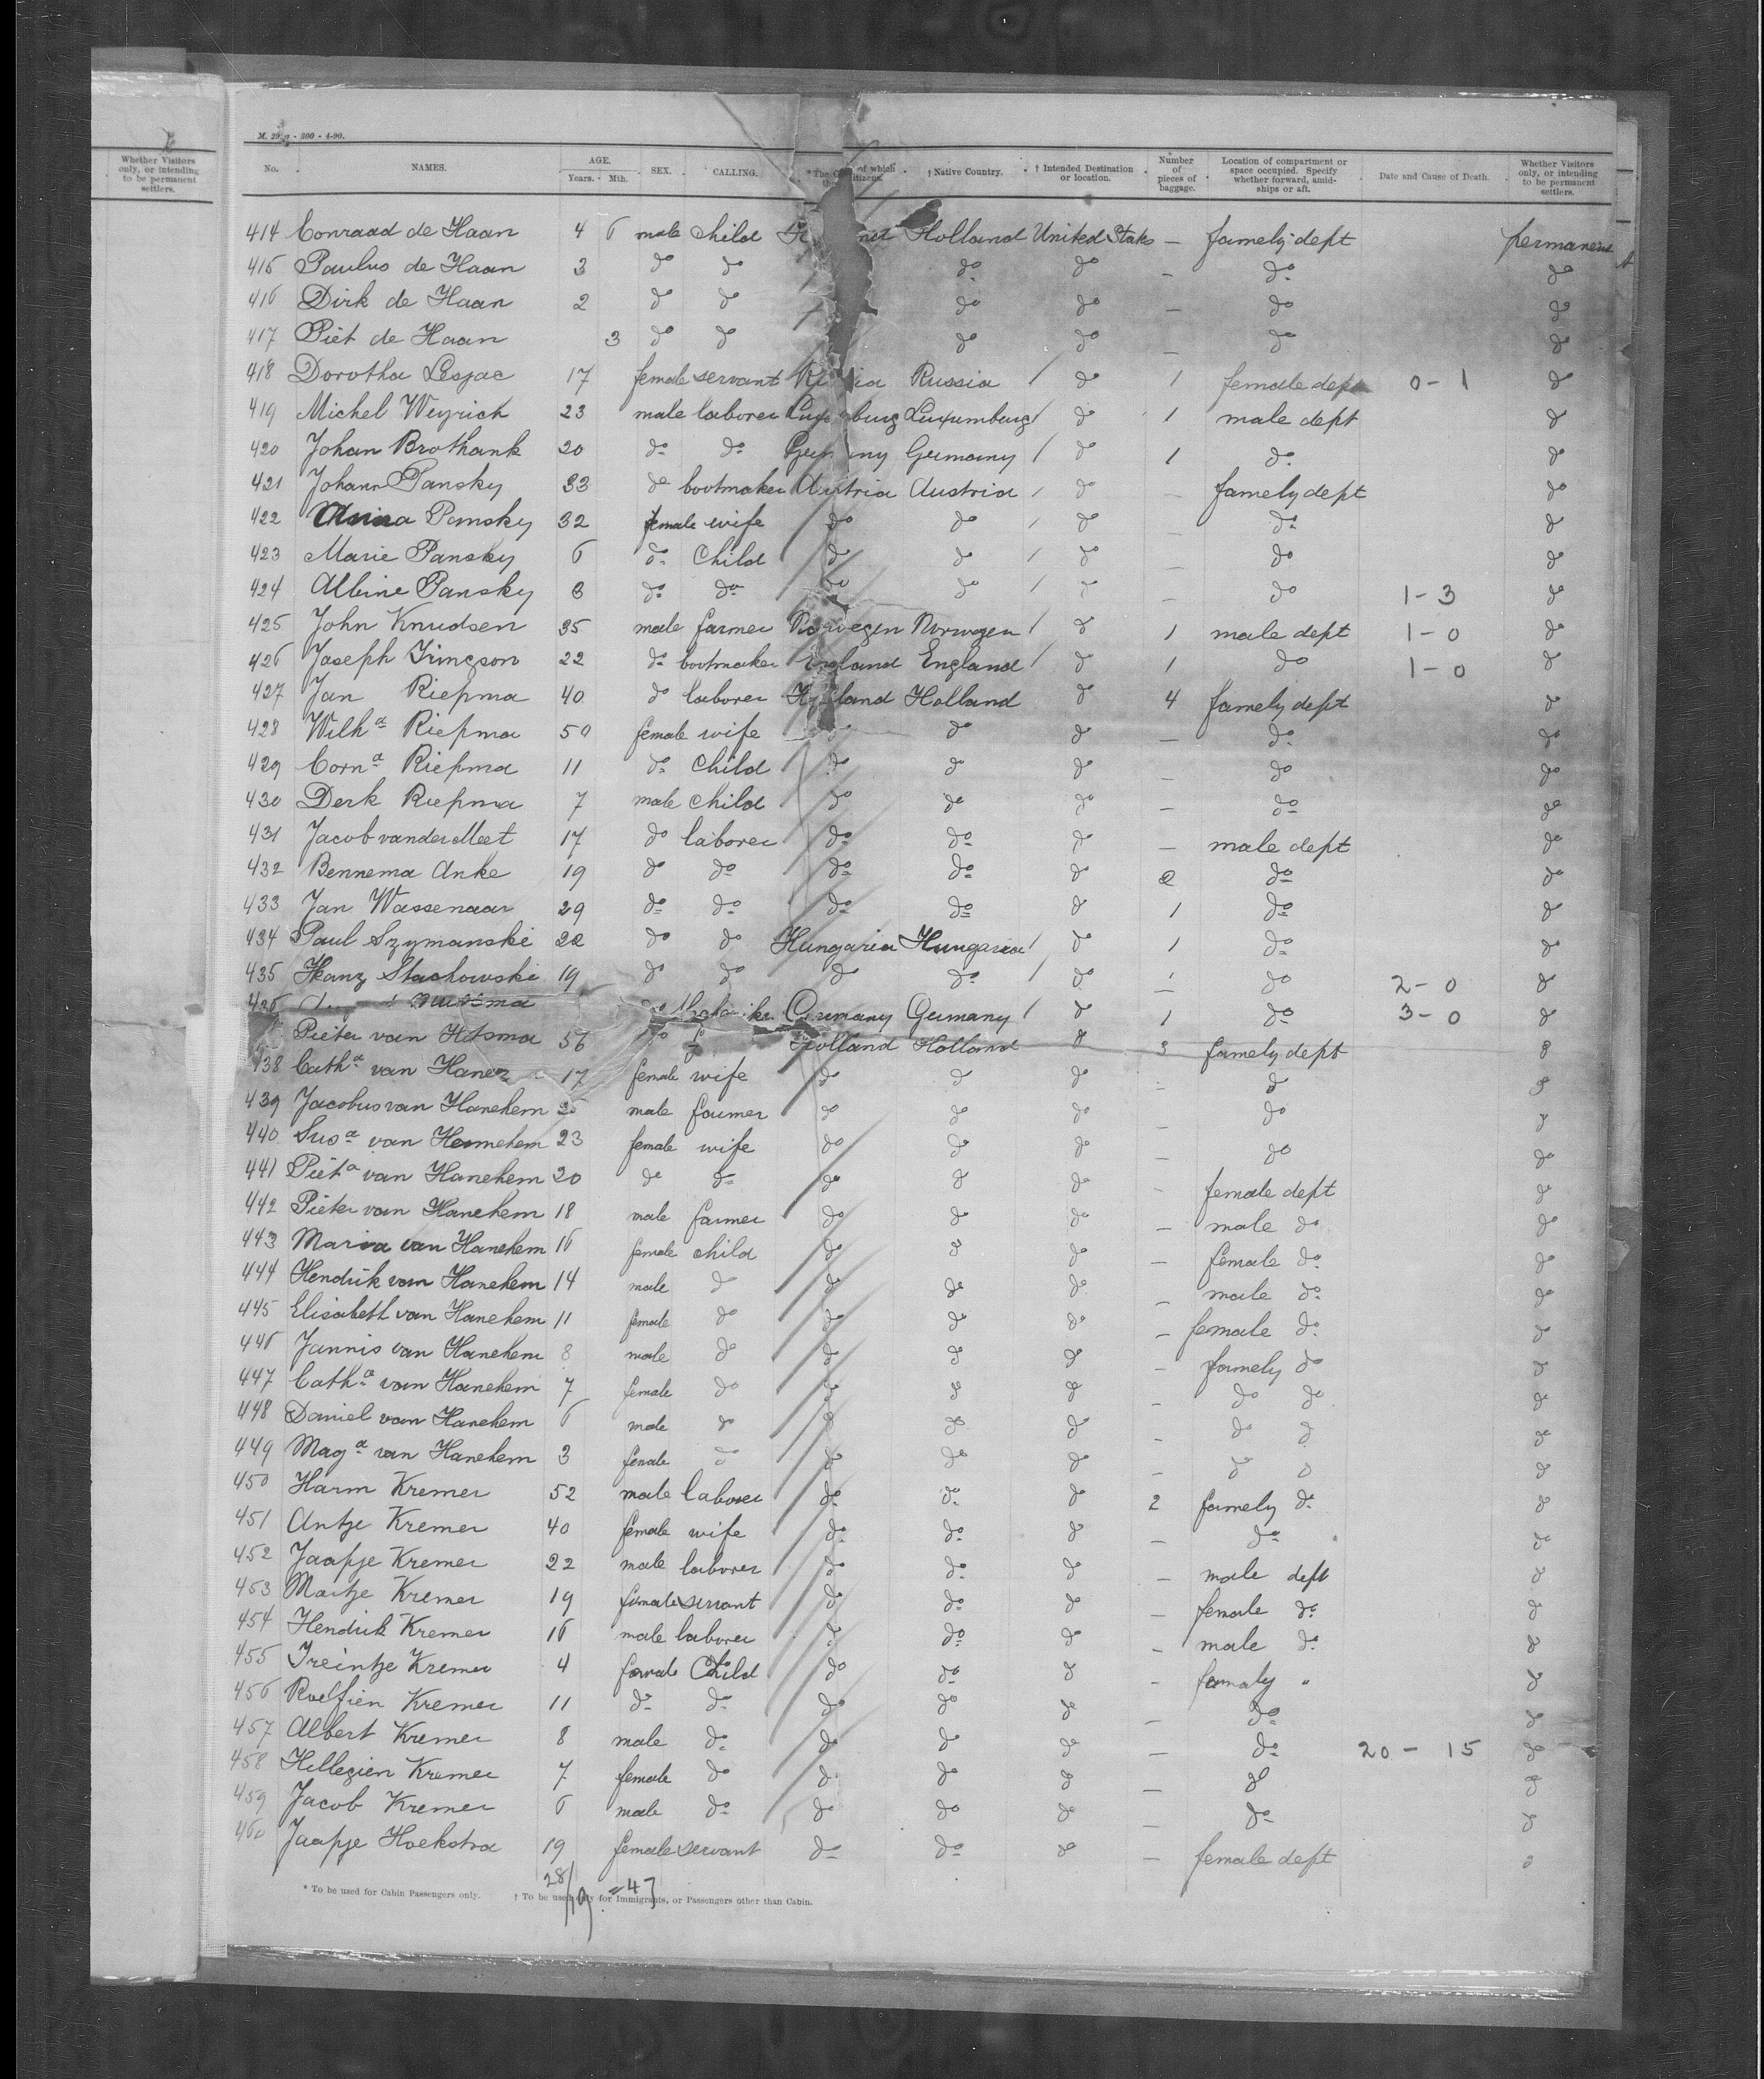 Whether Visitors only, or intending to be permanent settlers.
M. 29 g - 300 - 4-90.
No. NAMES. AGE. Years. Mth. SEX. CALLING. * The of which citizens. † Native Country. † Intended Destination or location. Number of pieces of baggage. Location of compartment or space occupied. Specify whether forward, amidships or aft. Date and Cause of Death. Whether Visitors only, or intending to be permanent settlers.
414 Conraad de Haan 4 6 male child Holland United States — famely dept permanent
415 Paulus de Haan 3 do do do do — do do
416 Dirk de Haan 2 do do do do — do do
417 Piet de Haan 3 do do do do — do do
418 Dorotha Lesjac 17 female servant Russia / do 1 female dept 0-1 do
419 Michel Weyrich 23 male laborer Luxumburg / do 1 male dept do
420 Johan Brothank 20 do do Germany / do 1 do do
421 Johann Pansky 33 do bootmaker Austria Austria / do — famely dept do
422 Anna Pansky 32 female wife do do / do — do do
423 Marie Pansky 6 do child do do / do — do do
424 Albine Pansky 3 do do do do / do — do 1-3 do
425 John Knudsen 35 male farmer Norwegen Norwegen / do 1 male dept 1-0 do
426 Joseph 22 do bootmaker England England / do 1 do 1-0 do
427 Jan Riepma 40 do laborer Holland do 4 famely dept do
428 Wilha Riepma 50 female wife do do do — do do
429 Corna Riepma 11 do child do do do — do do
430 Derk Riepma 7 male child do do do — do do
431 Jacob van der Meet 17 do laborer do do do — male dept do
432 Bennema Anke 19 do do do do do 2 do do
433 Jan Wassenaar 29 do do do do do 1 do do
434 Paul Szymanski 22 do do Hungaria Hungaria / do 1 do do
435 Franz Stachowski 19 do do do do / do 1 do 2-0 do
436 Germany Germany / do 1 do 3-0 do
Pieter van 56 do Holland Holland do 3 famely dept do
438 Catha van 17 female wife do do do — do do
439 Jacobus van Hanehem male farmer do do do — do do
440 Susa van Hannehem 23 female wife do do do — do do
441 Pieta van Hanehem 20 do do do do do — female dept do
442 Pieter van Hanehem 18 male farmer do do do — male do do
443 Maria van Hanehem 16 female child do do do — female do do
444 Hendrik van Hanehem 14 male do do do do — male do do
445 Elisabeth van Hanehem 11 female do do do do — female do do
446 Jannis van Hanehem 8 male do do do do — famely do do
447 Catha van Hanehem 7 female do do do do — do do do
448 Daniel van Hanehem 6 male do do do do — do do do
449 Maga van Hanehem 3 female do do do do — do do do
450 Harm Kremer 52 male laborer do do do 2 famely do do
451 Antje Kremer 40 female wife do do do — do do
452 Jaapje Kremer 22 male laborer do do do — male dept do
453 Martje Kremer 19 female servant do do do — female do do
454 Hendrik Kremer 16 male laborer do do do — male do do
455 Treintje Kremer 4 female Child do do do — famaly " do
456 Roelfien Kremer 11 do do do do do — do do
457 Albert Kremer 8 male do do do do — do 20 - 15 do
458 Hillegien Kremer 7 female do do do do — do do
459 Jacob Kremer 6 male do do do do — do do
460 Jaapje Hoekstra 19 female servant do do do — female dept do
28/19 = 47
* To be used for Cabin Passengers only. † To be used only for Immigrants, or Passengers other than Cabin.